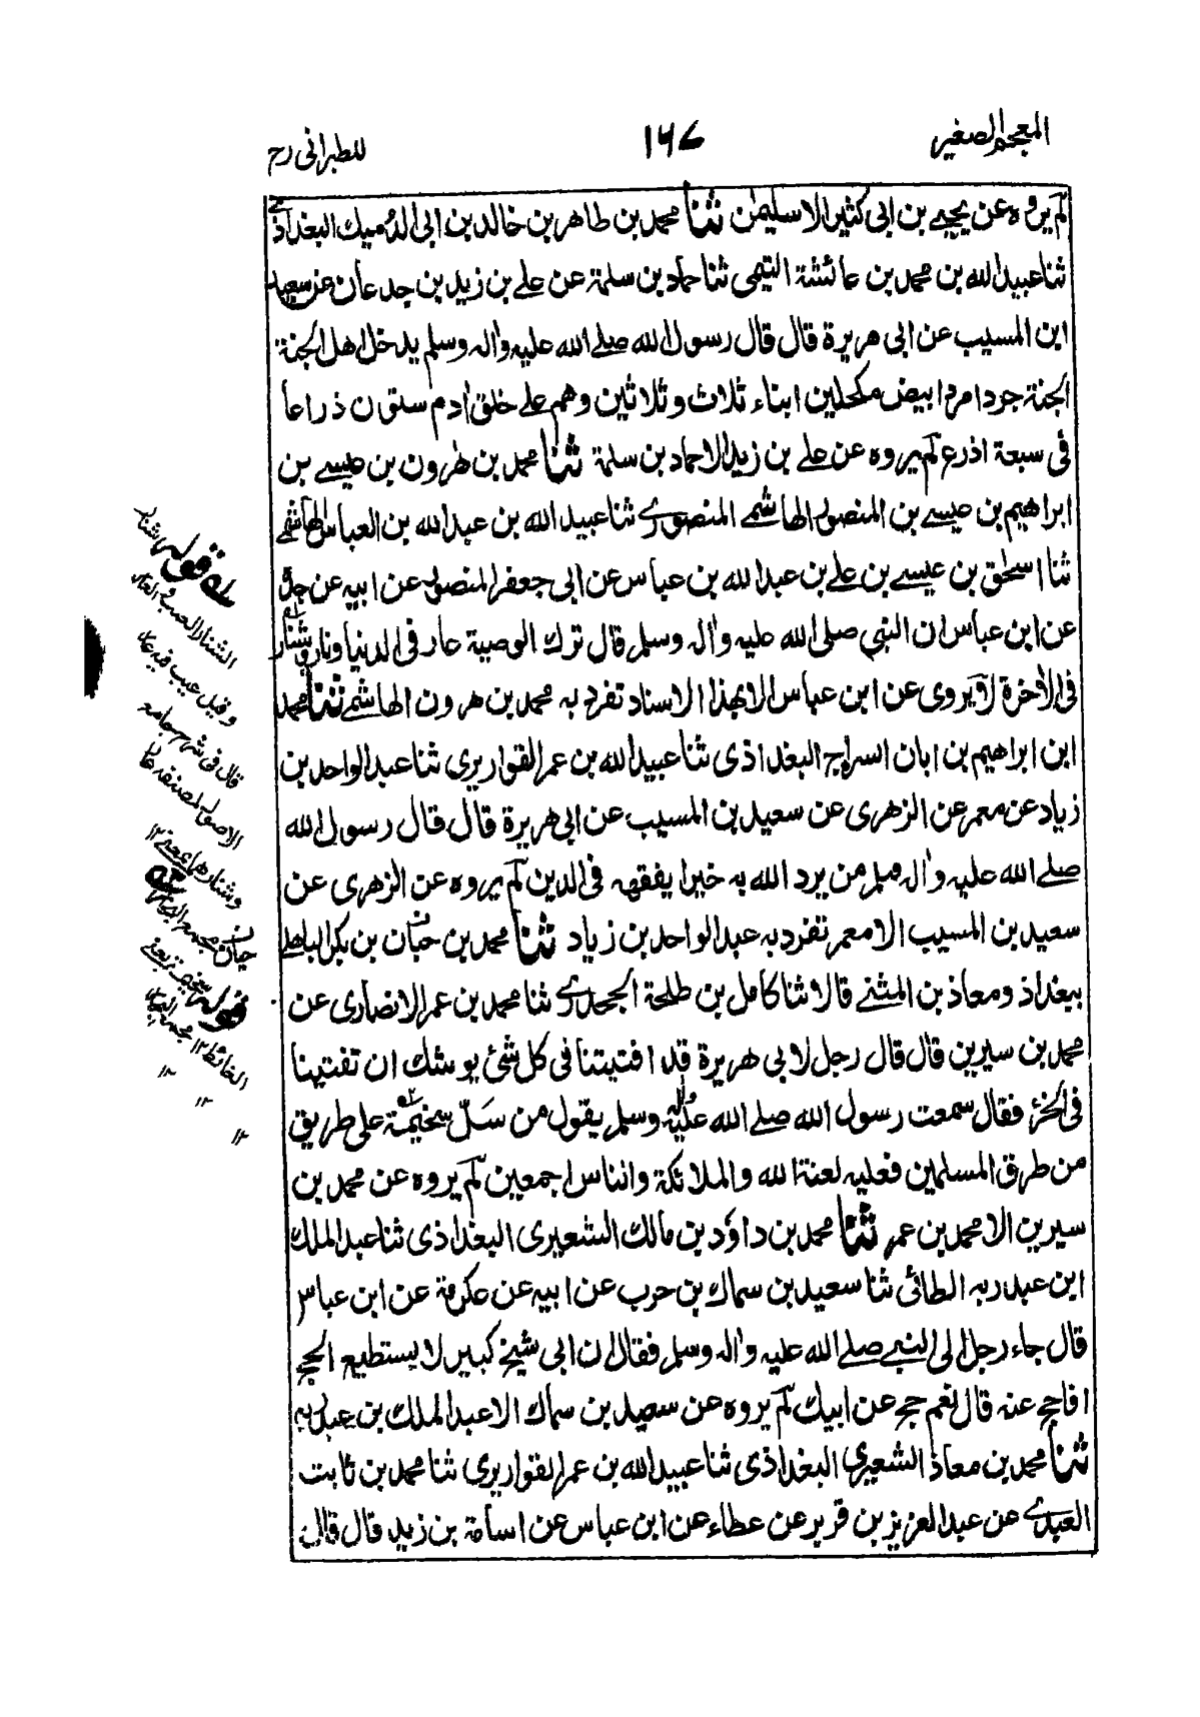 المعجم الصغير
١٦٧
للطبرانی رح
لم يروه عن يحيے بن ابی كثير الا سليمٰن ثنا محمد بن طاهر بن خالد بن ابی الدميك البغداذے
ثنا عبيد الله بن محمد بن عائشة التيمی ثنا حماد بن سلمة عن علے بن زيد بن جدعان عن سعيد
ابن المسيب عن ابی هريرة قال قال رسول الله صلے الله عليه واٰله وسلم يدخل اهل الجنة
الجنة جردا مردا بيض مكحلين ابناء ثلاث وثلاثين وهم علے خلق اٰدم ستون ذراعا
فی سبعة اذرع لم يروه عن علے بن زيد الا حماد بن سلمة ثنا محمد بن هٰرون بن عيسے بن
ابراهيم بن عيسے بن المنصور الهاشمے المنصورے ثنا عبيد الله بن عبد الله بن العباس الهاشمے
ثنا اسحٰق بن عيسے بن علے بن عبد الله بن عباس عن ابی جعفر المنصور عن ابيه عن جده
عن ابن عباس ان النبی صلی الله عليه واٰله وسلم قال ترك الوصية عار فی الدنيا ونار وشنار
فی الاٰخرة لا يروی عن ابن عباس الا بهذا الاسناد تفرد به محمد بن هرون الهاشمے ثنا محمد
ابن ابراهيم بن ابان السراج البغداذی ثنا عبيد الله بن عمر القواريری ثنا عبد الواحد بن
زياد عن معمر عن الزهری عن سعيد بن المسيب عن ابی هريرة قال قال رسول الله
صلے الله عليه واٰله وسلم من يرد الله به خيرا يفقهه فی الدين لم يروه عن الزهری عن
سعيد بن المسيب الا معمر تفرد به عبد الواحد بن زياد ثنا محمد بن حبان بن بكر الباهلے
ببغداذ ومعاذ بن المثنے قالا ثنا كامل بن طلحة الجحدرے ثنا محمد بن عمر الانصاری عن
محمد بن سيرين قال قال رجل لابی هريرة قد افتيتنا فی كل شئ يوشك ان تفتينا
فی الخرء فقال سمعت رسول الله صلے الله عليه واٰله وسلم يقول من سَلّ سخيمة علی طريق
من طرق المسلمين فعليه لعنة الله والملائكة والناس اجمعين لم يروه عن محمد بن
سيرين الا محمد بن عمر ثنا محمد بن داؤد بن مالك الشعيری البغداذی ثنا عبد الملك
ابن عبد ربه الطائی ثنا سعيد بن سماك بن حرب عن ابيه عن عكرمة عن ابن عباس
قال جاء رجل الی النبے صلے الله عليه واٰله وسلم فقال ان ابی شيخ كبير لا يستطيع الحج
افاحج عنه قال نعم حج عن ابيك لم يروه عن سعيد بن سماك الا عبد الملك بن عبد ربه
ثنا محمد بن معاذ الشعيری البغداذی ثنا عبيد الله بن عمر القواريری ثنا محمد بن ثابت
العبدے عن عبد العزيز بن قرير عن عطاء عن ابن عباس عن اسامة بن زيد قال قال
قوله شنار
الشنار العيب والعار
وقيل عيب فيه عار
قال فی شرح جامع
الاصول لمصنفه عار
وشنار بمعنے ١٢
قوله سخيمة يعنے
الغائط ١٢ مجمع البحار
١٢
١٢
١٢